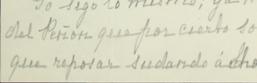 Yo sigo lo mismo, ya
del Peñon que por cierto so
que reposar sudando á cho